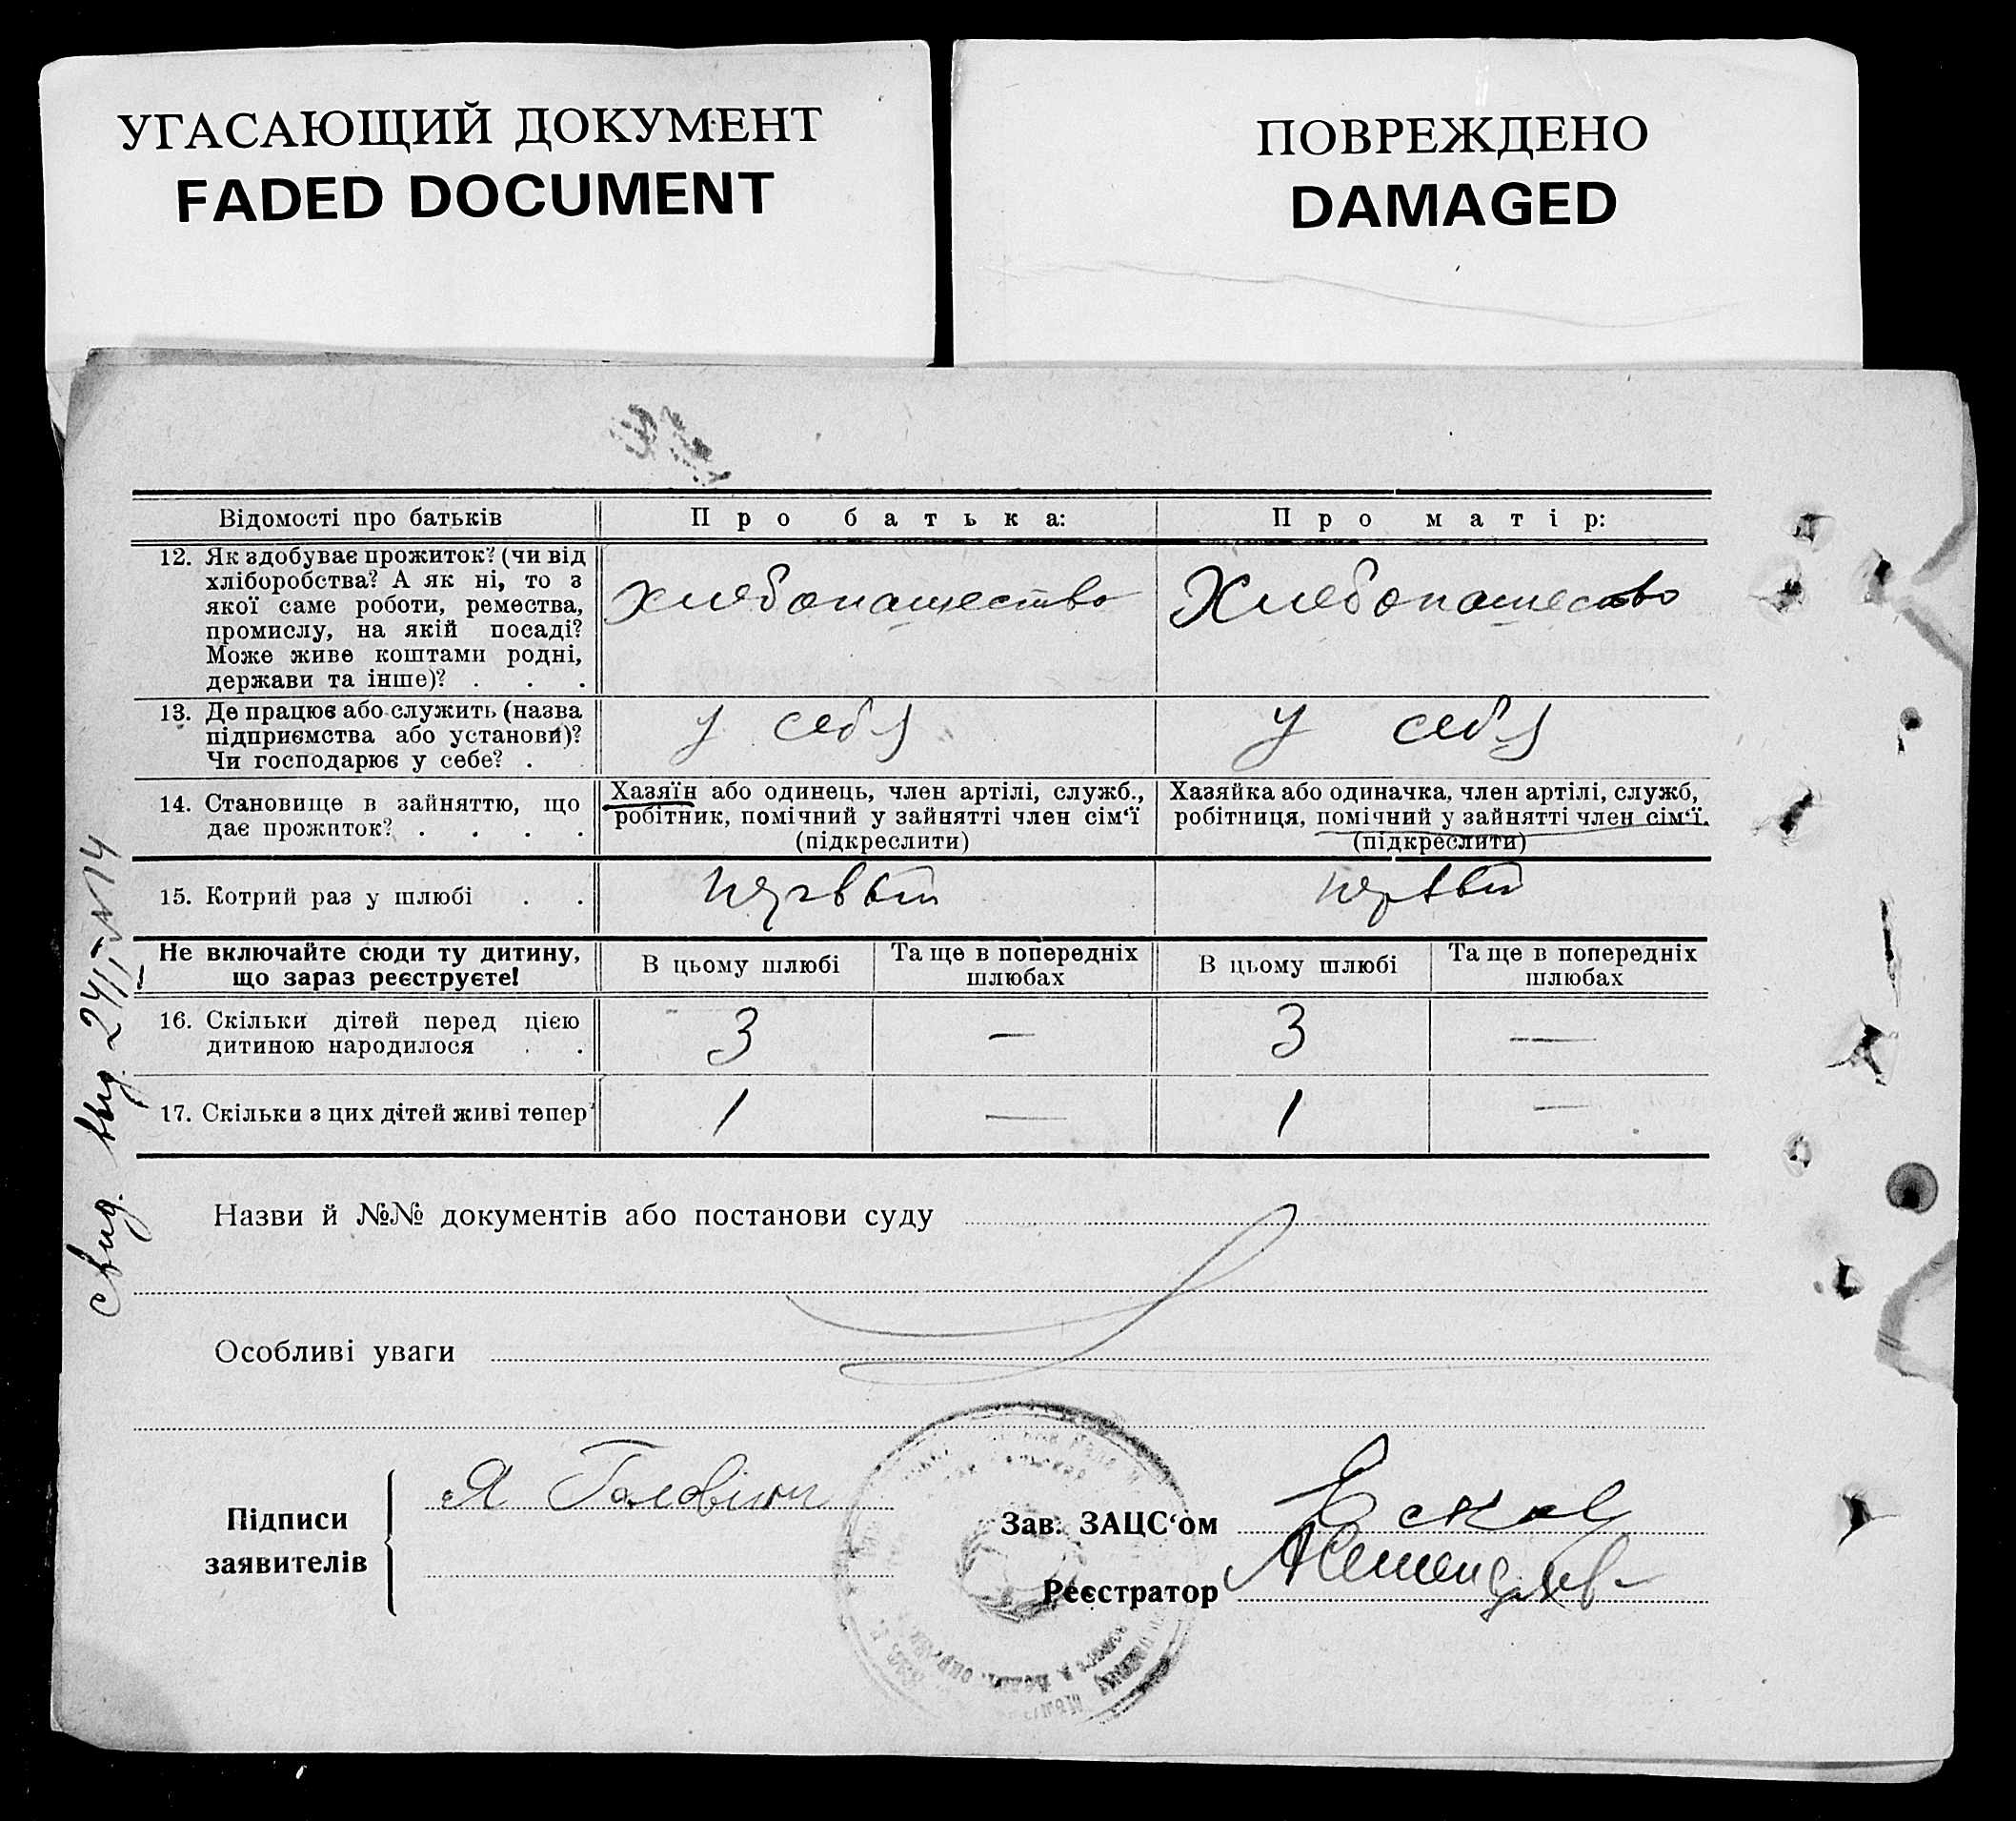 УГАСАЮЩИЙ ДОКУМЕНТ
FADED DOCUMENT
ПОВРЕЖДЕНО
DAMAGED
Відомості про батьків
Про батька:
Про матір:
12. Як здобуває прожиток? (чи від
хліборобства? А як ні, то з
якої саме роботи, ремества,
промислу, на якій посаді?
Може живе коштами родні,
держави та інше)? . . .
хлебопашество
Хлебопашество
13. Де працює або служить (назва
підприємства або установи)?
Чи господарює у себе? .
у себя
у себя
14. Становище в зайняттю, що
дає прожиток? . . . .
Хазяїн або одинець, член артілі, служб.,
робітник, помічний у зайнятті член сім‘ї
(підкреслити)
Хазяйка або одиначка, член артілі, служб,
робітниця, помічний у зайнятті член сім‘ї.
(підкреслити)
15. Котрий раз у шлюбі . .
первый
первый
Не включайте сюди ту дитину,
що зараз реєструєте!
В цьому шлюбі
Та ще в попередніх
шлюбах
В цьому шлюбі
Та ще в попередніх
шлюбах
16. Скільки дітей перед цією
дитиною народилося . .
3
—
3
—
17. Скільки з цих дітей живі тепер
1
—
1
—
свид. выд. 24/I N 14
Назви й №№ документів або постанови суду
Особливі уваги
Підписи
заявителів
Я
Зав. ЗАЦС‘ом
Реєстратор